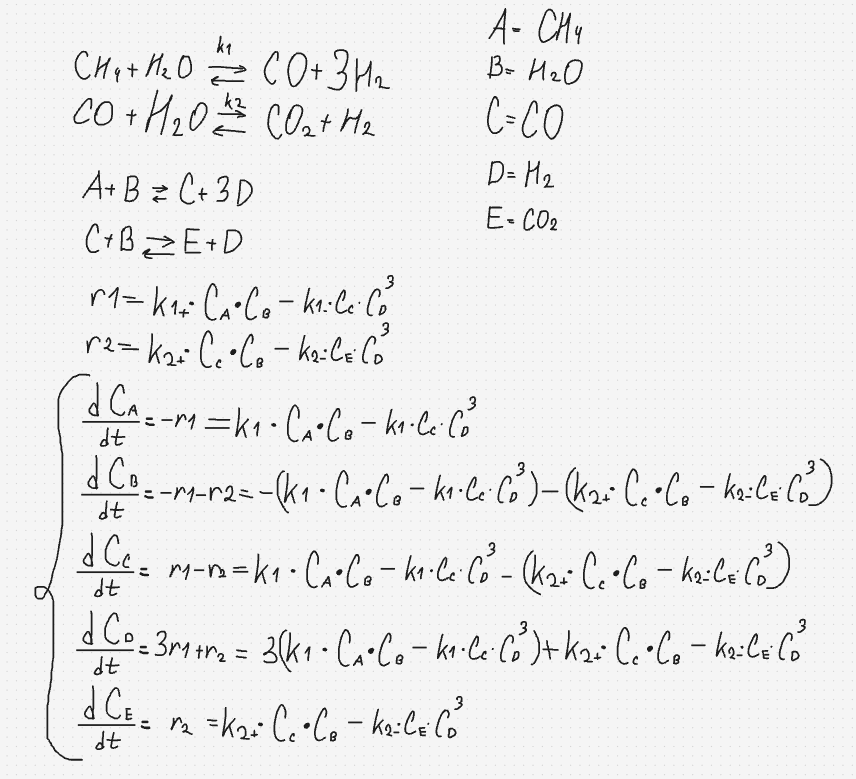 CH₄ + H₂O ⇌ CO + 3H₂
k1
CO + H₂O ⇌ CO₂ + H₂
k2
A + B ⇌ C + 3D
C + B ⇌ E + D
A - CH₄
B = H₂O
C = CO
D = H₂
E - CO₂
r1 = k₁₊ · C_A · C_B - k₁₋ · C_C · C_D³
r2 = k₂₊ · C_C · C_B - k₂₋ · C_E · C_D³
dC_A/dt = -r1 = k1 · C_A · C_B - k1 · C_C · C_D³
dC_B/dt = -r1 - r2 = -(k1 · C_A · C_B - k1 · C_C · C_D³) - (k₂₊ · C_C · C_B - k₂₋ · C_E · C_D³)
dC_C/dt = r1 - r₂ = k1 · C_A · C_B - k1 · C_C · C_D³ - (k₂₊ · C_C · C_B - k₂₋ · C_E · C_D³)
dC_D/dt = 3r1 + r₂ = 3(k1 · C_A · C_B - k1 · C_C · C_D³) + k₂₊ · C_C · C_B - k₂₋ · C_E · C_D³
dC_E/dt = r₂ = k₂₊ · C_C · C_B - k₂₋ · C_E · C_D³